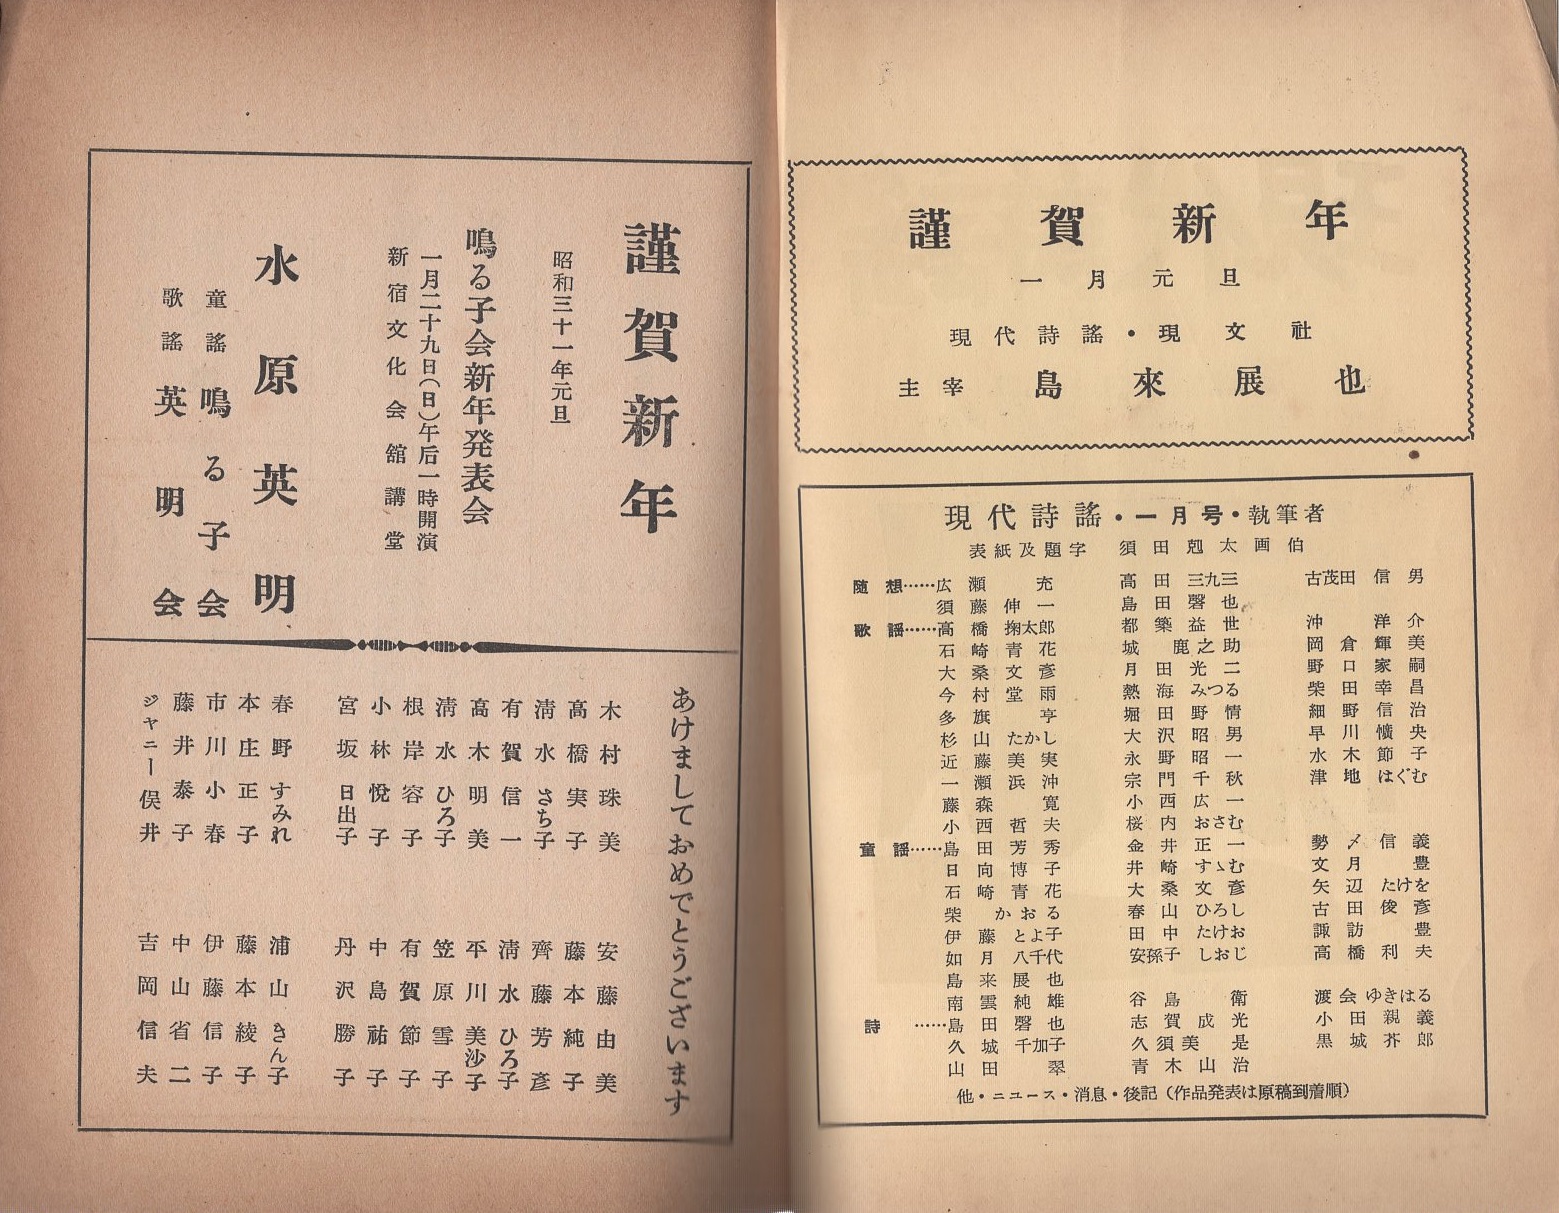 謹賀新年
一月元旦
現代詩謠・現文社
主宰 島來展也
現代詩謠・一月号・執筆者
表紙及題字 須田剋太画伯
随想……広瀬充 高田三九三 古茂田信男
須藤伸一 島田磬也
歌謡……高橋掬太郎 都築益世 沖洋介
石崎青花 城鹿之助 岡倉輝美
大桑文彦 月田光二 野口家嗣
今村堂雨 熱海みつる 柴田幸昌
多旗亨 堀田野情 細野信治
杉山たかし 大沢昭男 早川懭央
近藤美実 永野昭一 水木節子
一瀬浜沖 宗門千秋 津地はぐむ
藤森寛 小西広一
小西哲夫 桜内おさむ
童謡……島田芳秀 金井正一 勢〆信義
日向博子 井崎すゝむ 文月豊
石崎青花 大桑文彦 矢辺たけを
柴かおる 春山ひろし 古田俊彦
伊藤とよ子 田中たけお 諏訪豊
如月八千代 安孫子しおじ 高橋利夫
島来展也
南雲純雄 谷島衛 渡会ゆきはる
詩……島田磬也 志賀成光 小田親義
久城千加子 久須美是 黒城芥郎
山田翠 青木山治
他・ニュース・消息・後記（作品発表は原稿到着順）
謹賀新年
昭和三十一年元旦
鳴る子会新年発表会
一月二十九日（日）午后一時開演
新宿文化会館講堂
水原英明
童謠 鳴る子会
歌謠 英明会
あけましておめでとうございます
木村珠美
高橋実子
清水さち子
有賀信一
高木明美
清水ひろ子
根岸容子
小林悦子
宮坂日出子
春野すみれ
本庄正子
市川小春
藤井泰子
ジャニー俣井
安藤由美
藤本純子
齊藤芳彦
清水ひろ子
平川美沙子
笠原雪子
有賀節子
中島祐子
丹沢勝子
浦山きん子
藤本綾子
伊藤信子
中山省二
吉岡信夫